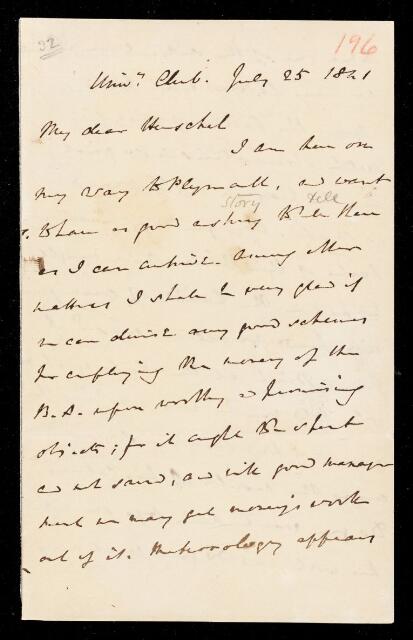 32
196
Univ.y Club. July 25 1841
My dear Herschel
I am here on
my way to Plymouth, and want
story tell
to have as good a story to tell them
as I can contrive. Among other
matters I shall be very glad if
we can devise any good schemes
for employing the money of the
B.A. upon worthy & promising
objects; for it ought to be spent
and not saved, and with good manage
ment we may get money's worth
out of it. Meteorology appears